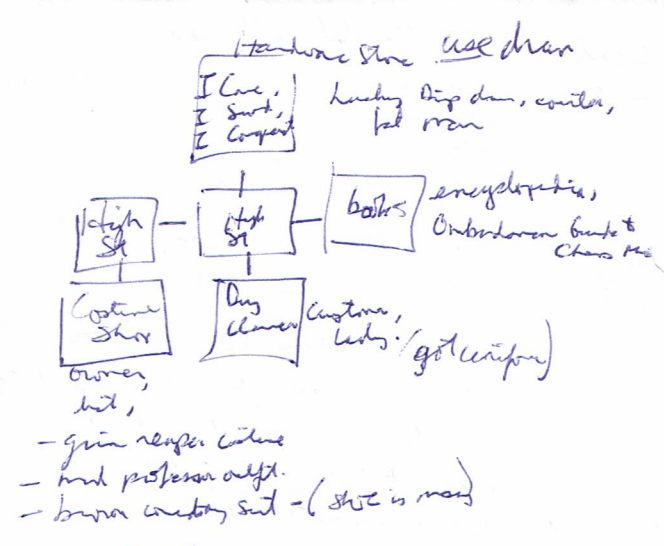 Hardware Store use drum
I Came,
I Sawed,
I Conquered
Lucky Dip drum, counter,
fat man
High
St
High
St
books
encyclopedia,
Ombudsman Guide to
Chaos
Costume
Shop
Dry
Cleaner
Customer,
lady. (got uniform)
owner,
hat,
- grim reaper costume
- mad professor outfit.
- brown cowboy suit - (shoe is